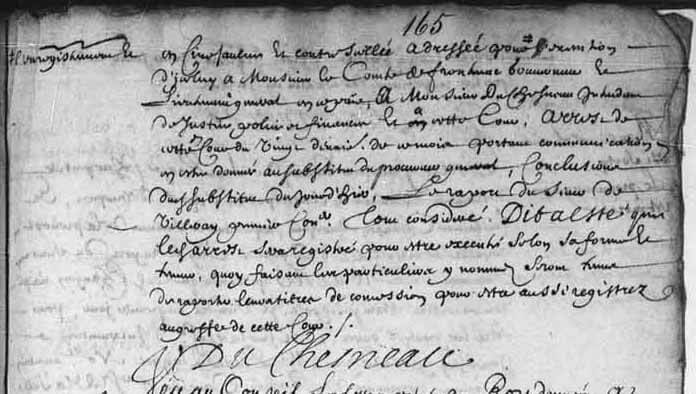 165
# l'enregistrement et
en cire jaulne et contrescellée adressée pour # l'execution
d'iceluy a Monsieur le Comte de frontenac gouverneur et
Lieutenant general en ce païs, A Monsieur DuChesneau Intendant
de Justice, police et finances et a cette Cour, Arrest de
cette Cour du Vingt de ce mois portant communication
en estre donné au substitut du procureur general, Conclusions
dud substitut du jourd'huy, Le raport du sieur de
Villeray premier Coner. Tout consideré. Dit a esté que
led arrest sera registré pour estre executé selon sa forme et
teneur, quoy faisant les particuliers y nommez seront tenus
de raporter leurs tiltres de concession pour estre aussi registrez
au greffe de cette Cour ./.
DuChesneau
Veu au Conseil